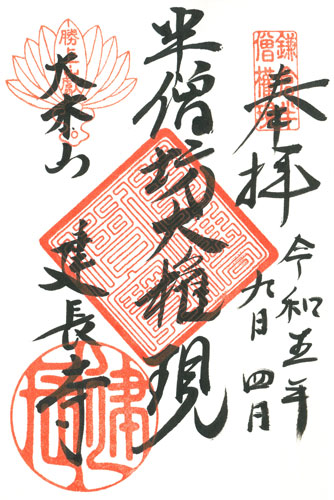 奉拝
令和五年
九月四日
半僧坊大権現
勝上嶽
大本山
建長寺
建長